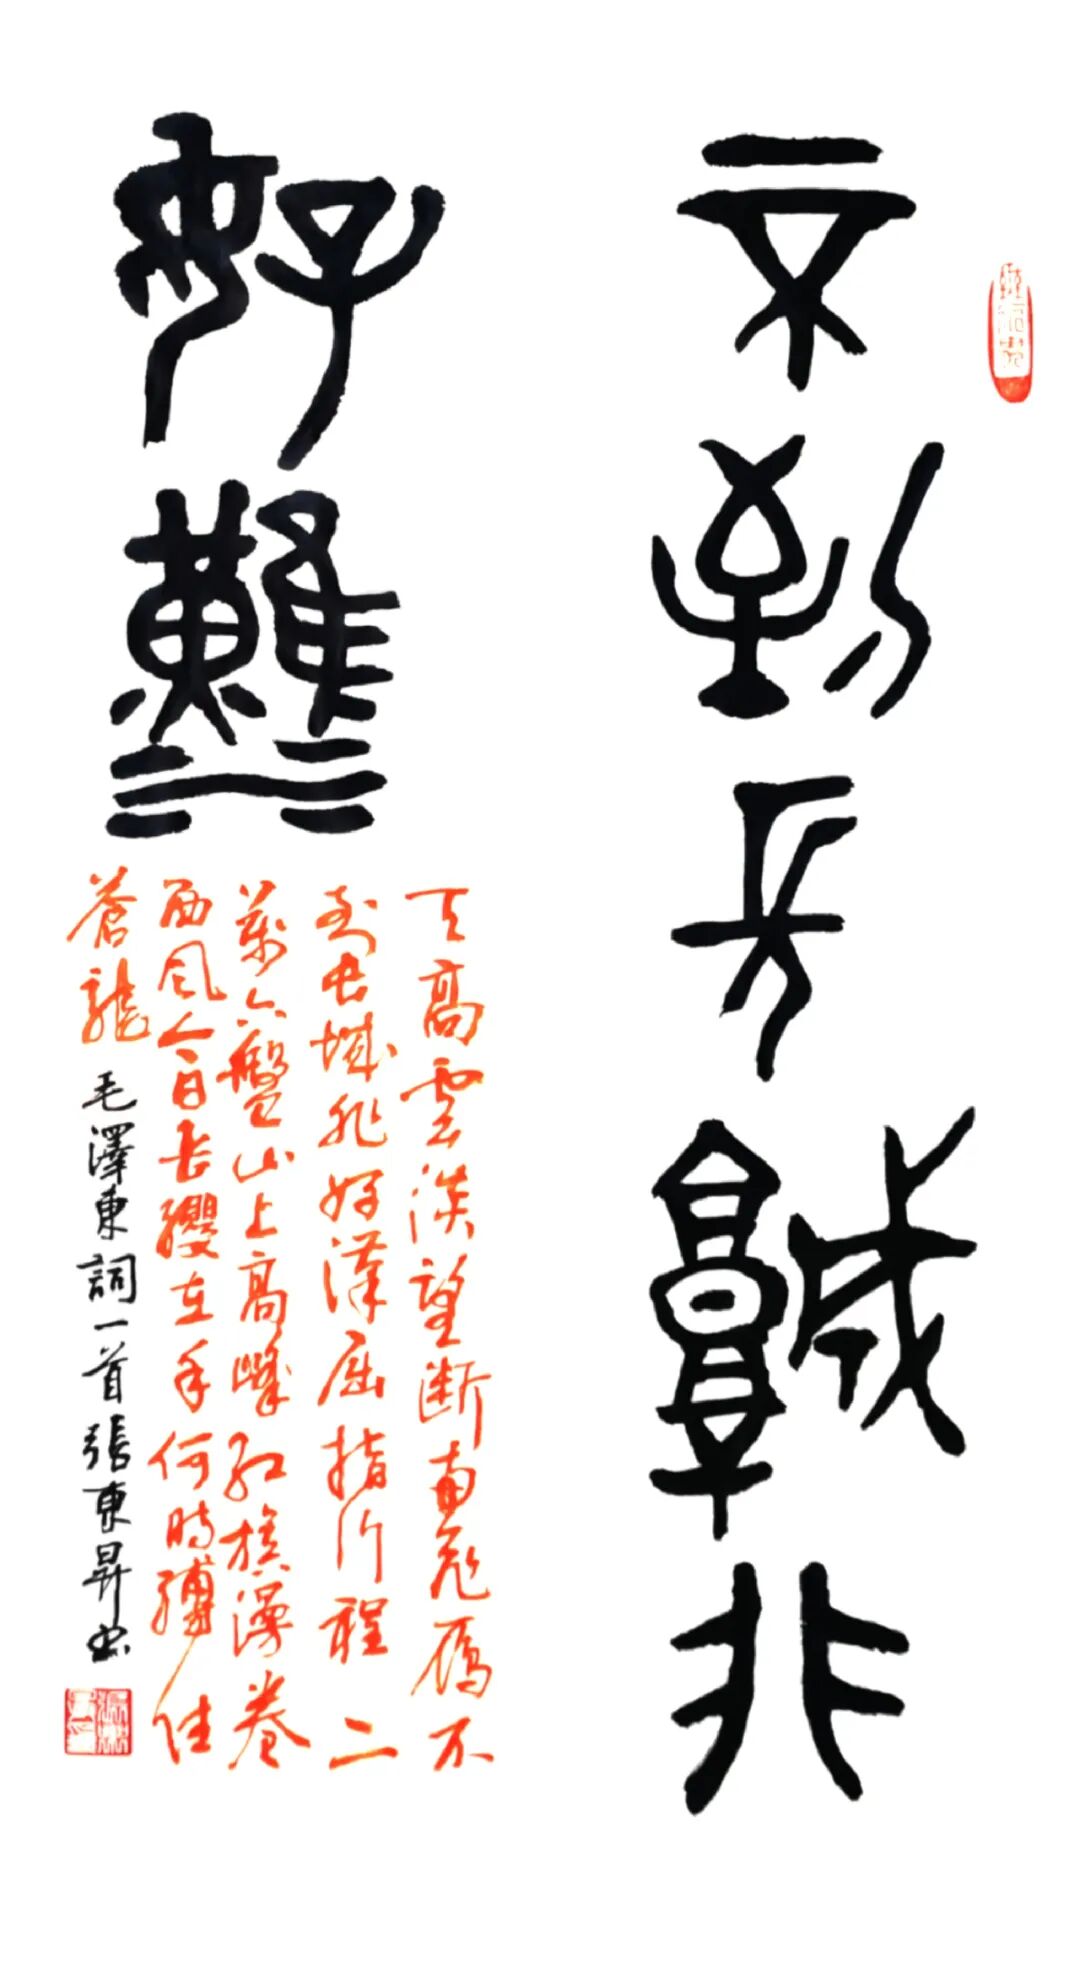 不到長城非
好漢
天高雲淡望斷南飛雁不
到長城非好漢屈指行程二
萬六盤山上高峰紅旗漫卷
西風今日長纓在手何時縛住
蒼龍
毛澤東詞一首張東昇书